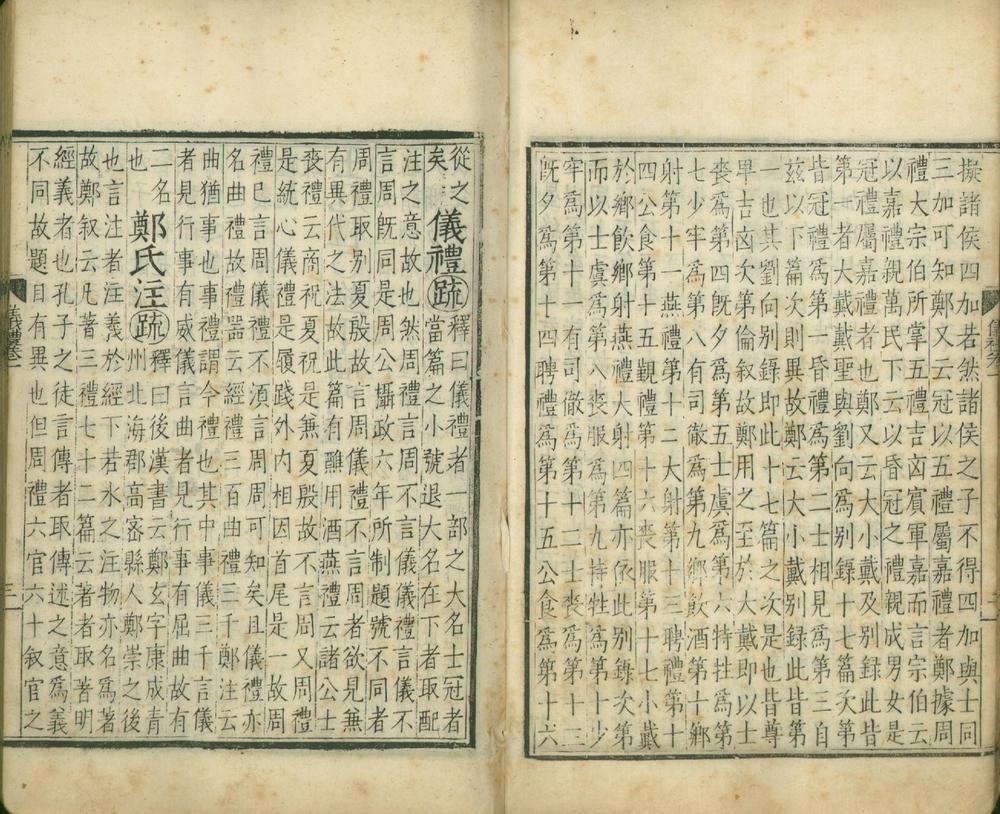 擬諸侯四加若然諸侯之子不得四加與士同
三加可知鄭又云冠以五禮屬嘉禮者鄭據周
禮大宗伯所掌五禮吉凶賔軍嘉而言宗伯云
以嘉禮親萬民下云以昏冠之禮親成男女是
冠禮屬嘉禮者也鄭又云大小戴及别録此皆
第一者大戴戴聖與劉向爲别錄十七篇次第
皆冠禮爲第一昏禮爲第二士相見爲第三自
兹以下篇次則異故鄭云大小戴别録此皆第
一也其劉向别錄即此十七篇之次是也皆尊
卑吉凶次第倫叙故鄭用之至於大戴即以士
喪爲第四旣夕爲第五士虞爲第六特牲爲第
七少牢爲第八有司徹爲第九鄉飲酒第十鄉
射第十一燕禮第十二大射第十三聘禮第十
四公食第十五覲禮第十六喪服第十七小戴
於鄉飲鄉射燕禮大射四篇亦依此别錄次第
而以士虞爲第八喪服爲第九特牲爲第十少
牢爲第十一有司徹爲第十二士喪爲第十三
旣夕爲第十四聘禮爲第十五公食爲第十六
從之
矣
儀禮疏
釋曰儀禮者一部之大名士冠者
當篇之小號退大名在下者取配
注之意故也然周禮言周不言儀儀禮言儀不
言周旣同是周公攝政六年所制題號不同者
周禮取别夏殷故言周儀禮不言周者欲見無
有異代之法故此篇有醮用酒燕禮云諸公士
喪禮云商祝夏祝是兼夏殷故不言周又周禮
是統心儀禮是履踐外内相因首尾是一故周
禮巳言周儀禮不須言周周可知矣且儀禮亦
名曲禮故禮噐云經禮三百曲禮三千鄭注云
曲猶事也事禮謂今禮也其中事儀三千言儀
者見行事有威儀言曲者見行事有屈曲故有
二名
也
鄭氏注疏
釋曰後漢書云鄭玄字康成青
州北海郡高密縣人鄭崇之後
也言注者注義於經下若水之注物亦名爲著
故鄭叙云凡著三禮七十二篇云著者取著明
經義者也孔子之徒言傳者取傳述之意爲義
不同故題目有異也但周禮六官六十叙官之
儀禮卷一
三